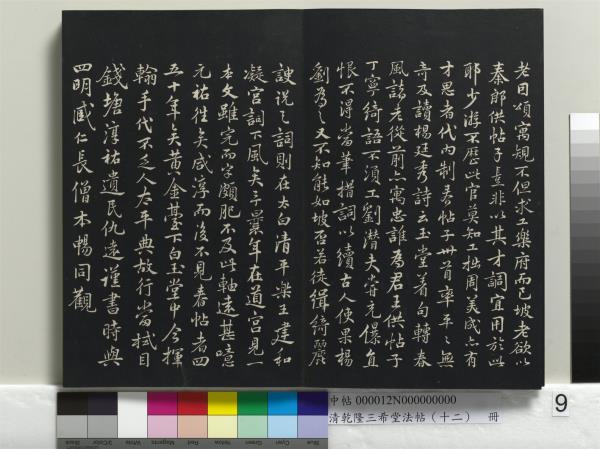 老因頌寓規不但求工樂府而已坡老欲以
秦郎供帖子豈非以其才調宜用於此
耶少游不歷此官莫知工拙周美成六有
才思者代內制春帖子卅首率平平無
奇及讀楊廷秀詩云玉堂著句轉春
風諸老從前亦寓忠誰為君王供帖子
丁寧綺語不須工劉潛夫寄元僚直
恨不得當筆措詞以續古人使果楊
劉為之又不知能如坡否若徒緝綺麗
諛悅之詞則在太白清平樂王建和
凝宮詞下風矣予昔年在道宮見一
本文雖完而字頗肥不及此軸遠甚噫
元祐往矣咸淳而後不見春帖者四
五十年矣黃金臺下白玉堂中今揮
翰手代不乏人太平典故行當拭目
錢塘淳祐遺民仇遠謹書時與
四明臧仁長僧本暢同觀
中帖 000012N000000000
清乾隆三希堂法帖(十二) 冊
9
Black
3/Color
White
Magenta
Red
Yellow
Green
Cyan
Blue